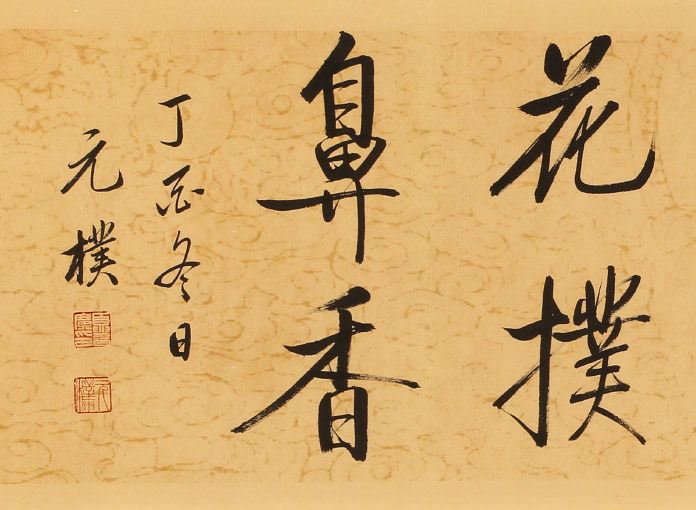 花撲
鼻香
丁酉冬日
元樸